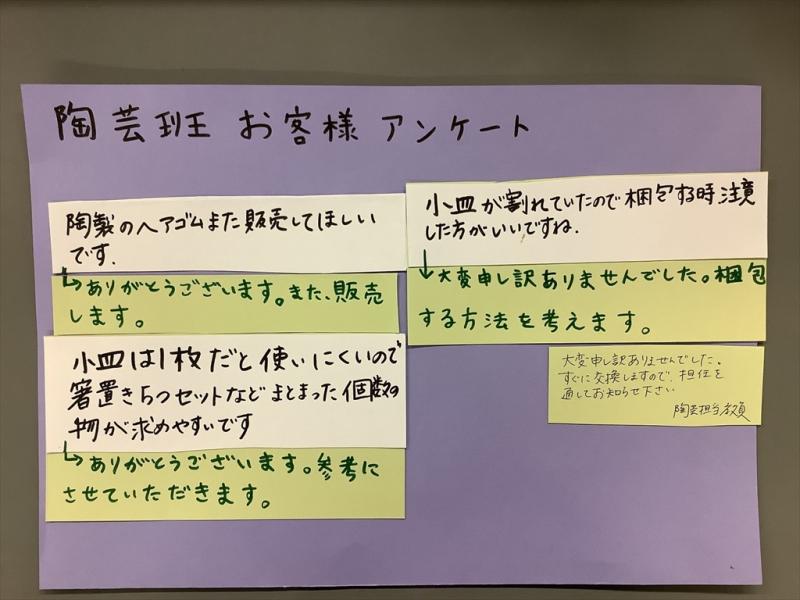 陶芸班 お客様 アンケート
陶製のヘアゴムまた販売してほしい
です.
↳ありがとうございます。また、販売
します。
小皿は1枚だと使いにくいので
箸置き5つセットなどまとまった個数の
物が求めやすいです
↳ありがとうございます。参考に
させていただきます。
小皿が割れていたので梱包する時注意
した方がいいですね.
↓大変申し訳ありませんでした。梱包
する方法を考えます。
大変申し訳ありませんでした。
すぐに交換しますので、担任を
通してお知らせ下さい
陶芸担当教員